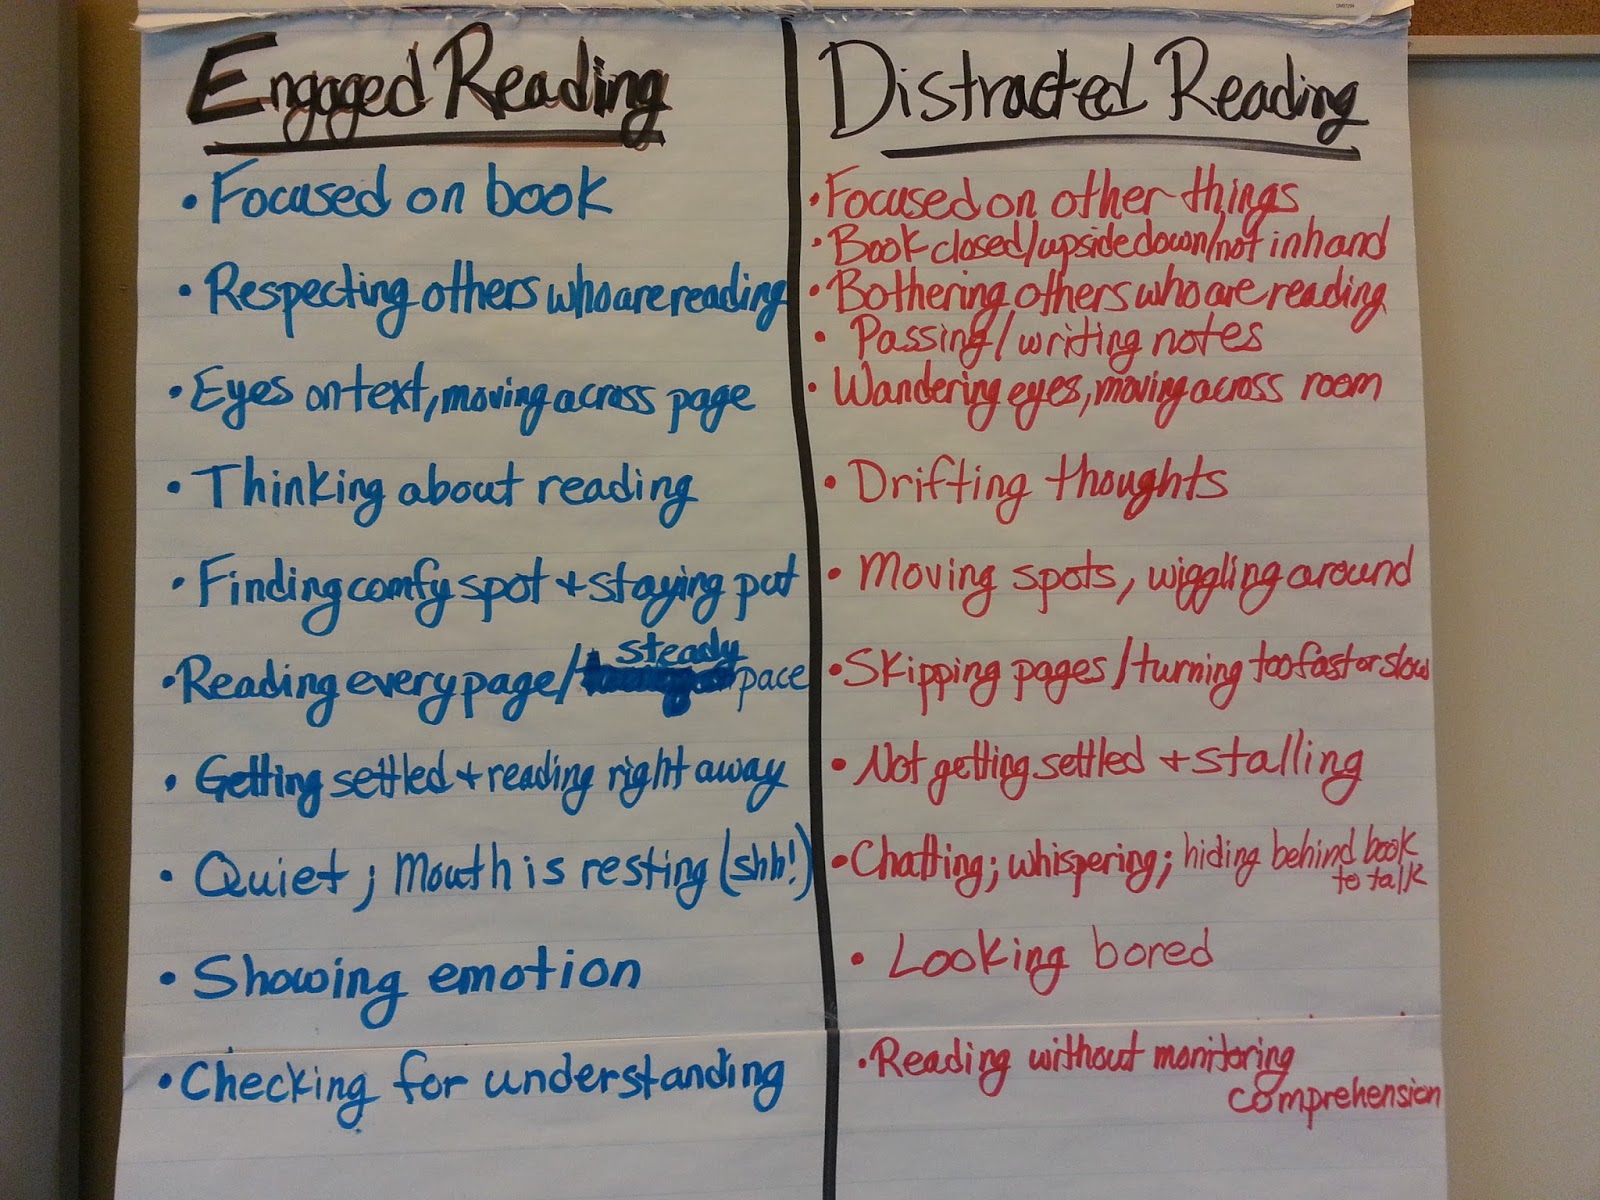 Engaged Reading
• Focused on book
• Respecting others who are reading
• Eyes on text, moving across page
• Thinking about reading
• Finding comfy spot + staying put
• Reading every page/ steady pace
• Getting settled + reading right away
• Quiet; Mouth is resting (shh!)
• Showing emotion
• Checking for understanding
Distracted Reading
• Focused on other things
• Book closed/upside down/not in hand
• Bothering others who are reading
• Passing/writing notes
• Wandering eyes, moving across room
• Drifting thoughts
• Moving spots, wiggling around
• Skipping pages/turning too fast or slow
• Not getting settled + stalling
• Chatting; whispering; hiding behind book
to talk
• Looking bored
• Reading without monitoring
comprehension